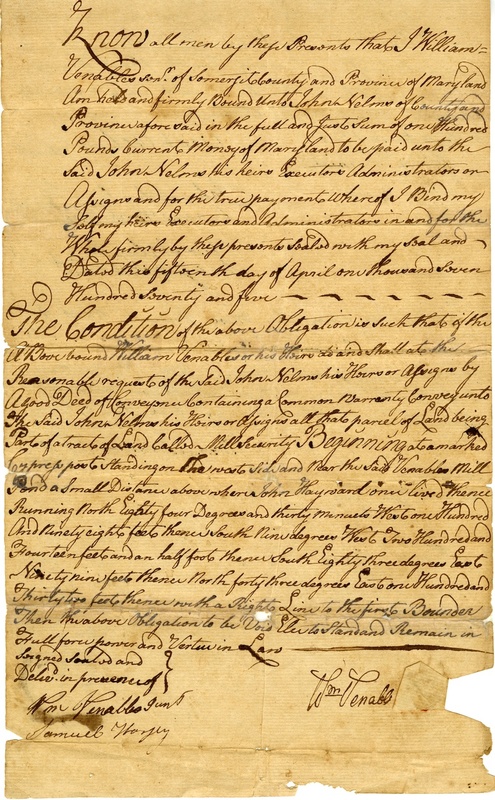 Know all men by these Presents that I William
Venables senr. of Somerset County and Province of Maryland
Am held and firmly Bound unto John Nelms of County and
Province afore said in the full and Just Sum of one Hundred
Pounds Current Money of Maryland to be paid unto the
Said John Nelms his heirs Executors Administrators or
Assigns and for the true payment whereof I Bind my
Self my heirs Executors and Administrators in and for the
Whole firmly by these presents Sealed with my Seal and
Dated this fifteenth day of April one thousand Seven
Hundred Seventy and five
The Condition of the above Obligation is such that if the
Above bound William Venables or his Heirs do and Shall at the
Reasonable request of the Said John Nelms his Heirs or Assigns by
A good Deed of Conveyance Containing a Common Warranty Convey unto
The Said John Nelms his Heirs or Assigns all that parcel of Land being
Part of a tract of Land Called Mill Security Beginning at a marked
Cypress post Standing on the west Side and Near the Said Venables Mill
Pond a Small Distance above where John Hayward once lived thence
Running North Eighty four Degrees and thirty minutes West one Hundred
And Ninety eight feet thence South Nine degrees West Two Hundred and
Fourteen feet and an half foot thence South Eighty three degrees East
Ninety nine feet thence North forty three degrees East one Hundred and
Thirty two feet thence with a Right Line to the first Bounder
Then the above Obligation to be Void Else to Stand and Remain in
Full force power and Vertue in Law
Seigned Sealed and
Delivd. in presence of
Wm Venables
Wm Venables Junr
Samuel